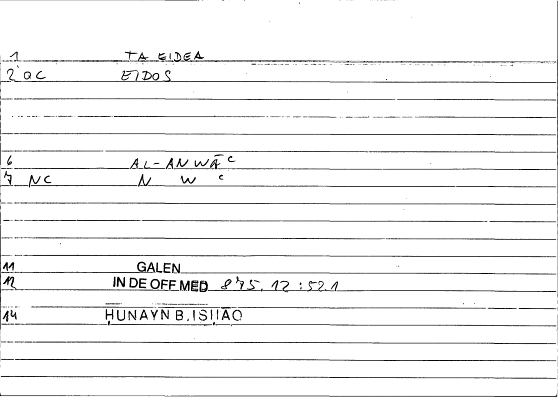 1 TA EIDEA
2 OC EIDOS
6 AL-ANWĀᶜ
7 NC N W ᶜ
11 GALEN
12 IN DE OFF MED 875.12:52.1
14 ḤUNAYN B.ISḤĀQ